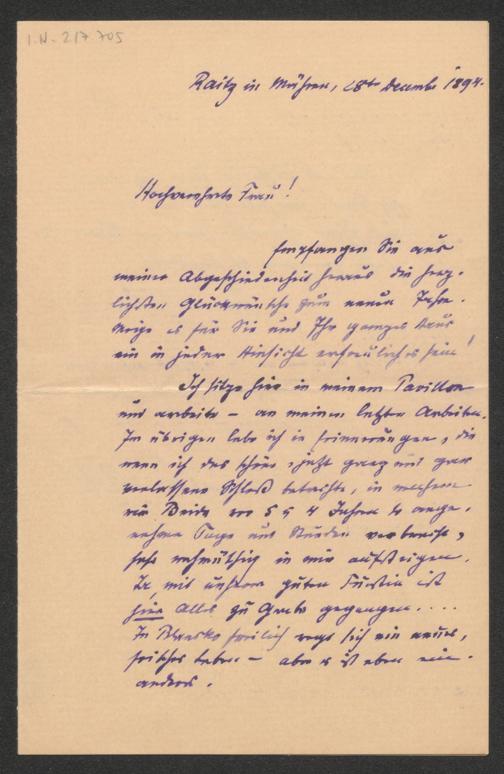 I.N. 217.705
Raitz in Mähren, 28te December 1894.
Hochverehrte Frau!
Empfangen Sie aus
meiner Abgeschiedenheit heraus die herz-
lichsten Glückwünsche zum neuen Jahre.
Möge es für Sie und Ihr ganzes Haus
ein in jeder Hinsicht erfreuliches sein!
Ich sitze hier in meinem Pavillon
und arbeite – an meinen letzten Arbeiten.
Im übrigen lebe ich in Erinnerungen, die
wenn ich das schöne, jetzt ganz und gar
verlassene Schloß betrachte, in welchem
wir Beide vor 4 Jahren so ange-
nehme Tage und Stunden verbracht,
sehr wehmüthig in mir aufsteigen.
Ja, mit unserer guten Fürstin ist
hier Alles zu Grabe gegangen....
In Blansko freilich regt sich ein neues,
frisches Leben – aber es ist eben ein
anderes.